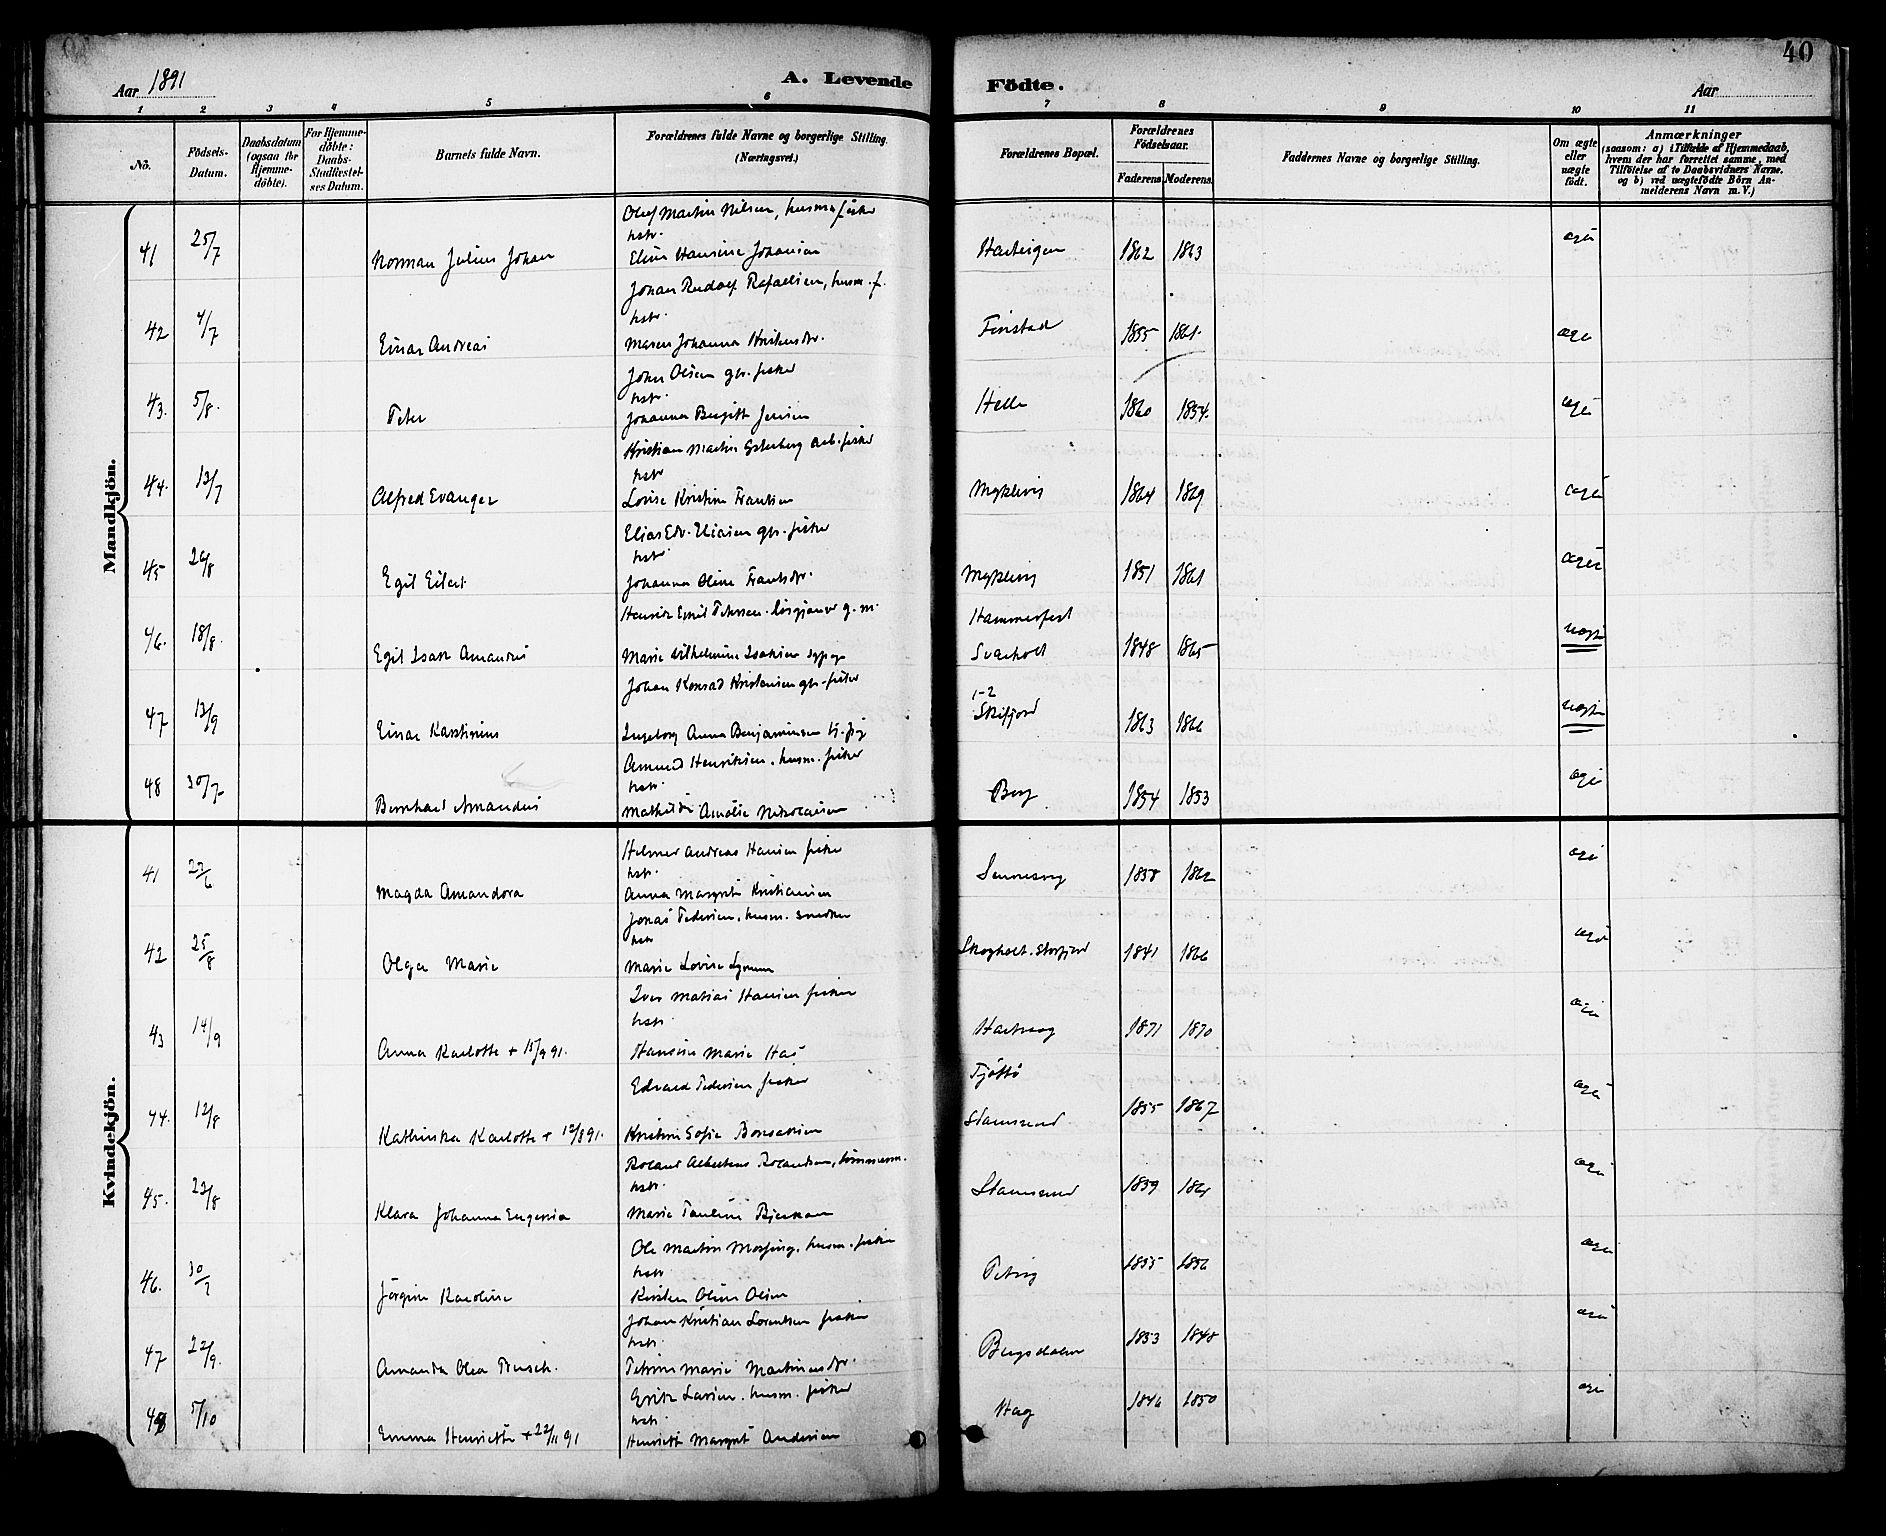 40
Aar 1891
A. Levende
Födte.
Aar
1 2 3 4 5 6 7 8 9 10 11
Nö.
Födsels-Datum.
Daabsdatum (ogsaa for Hjemmedöbte).
For Hjemmedöbte: Daabs-Stadfæstelses Datum.
Barnets fulde Navn.
Forældrenes fulde Navne og borgerlige Stilling. (Næringsvei.)
Forældrenes Bopæl.
Forældrenes Födselsaar.
Faderens Moderens.
Faddernes Navne og borgerlige Stilling.
Om ægte eller uægte födt.
Anmærkninger
(saasom: a) i Tilfælde af Hjemmedaab, hvem der har forrettet samme, med Tilföielse af to Daabsvidners Navne, og b) ved uægtefödte Börn Anmelderens Navn m. V.)
Mandkjön.
Olaf Martin Nilsen, husm. fisker
hstr.
41 25/7 Norman Julius Johan Eline Hansine Johansen 1862 1863 ægte
Johan Rudolf Rafaelsen, husm. f.
hstr.
42 4/7 Einar Andreas Maren Johanna Kristensdr. Finstad 1855 1861 ægte
John Olsen gbr. fisker
hstr.
43. 5/8. Peter Johanna Birgitte Jensen Helle 1860 1854. ægte
Kristian Martin arb. fisker
hstr
44. 13/7 Alfred Evanger Lovise Kristine Frantsen 1864 1869 ægte
Elias Edv. Eliasen gbr. fisker
hstr.
45 Egil Eilert Johanna Oline Frantsdr. 1851 1861 ægte
Henrik Emil Petersen g. m. Hammerfest
46. 18/8. Egil Isak Amandus Marie Vilhelmine Isaksen Sværholt 1848 1865 uægte
Johan Konrad Kristensen gbr. fisker 1-2
47 13/9 Einar Karstinius Ingeborg Anna Benjaminsen tj. pige Skifjord 1863 1866 uægte
Amund Henriksen. husm. fisker
hstr.
48 30/7 Bernhard Amandus Mathilde Amalie Nikolaisen Berg 1854 1853 ægte
Kvindekjön.
Helmer Andreas Hansen fisker
hstr.
41 23/6 Magda Amandora Anna Margrete Kristiansen Sennesvig 1858 1862 ægte
Jonas Pedersen. husm. snedker
hstr
42 25/8 Olga Marie Marie Lovise Skogholt. Storfjord 1841 1866 ægte
Iver Matias Hansen fisker
hstr.
43 14/9 Anna Karlotte + 15/9 91. Hansine Marie Hartvaag 1871 1870 ægte
Edvard Pedersen fisker Tjöttö
44. 12/8 Kathinka Karlotte + 12/8 91. Kristine Sofie Stamsund 1855 1867 ægte
Roland Albertus Rolandsen, tömmerm.
hstr.
45. 22/8 Klara Johanna Eugenia Marie Pauline Stamsund 1859 1861 ægte
Ole Martin husm. fisker
hstr.
46. 30/7 Jörgine Karoline Kirsten Oline Olsen Petvig 1855 1856 ægte
Johan Kristian Lorentsen fisker
hstr.
47 22/9. Amanda Olea Petrine Marie Martinusdr. Bergsdalen 1853 1848 ægte
Larsen. husm. fisker
hstr.
48 5/10 Emma Henriette + 22/11 91 Henriette Margrete Andersen Hag 1846 1850 ægte